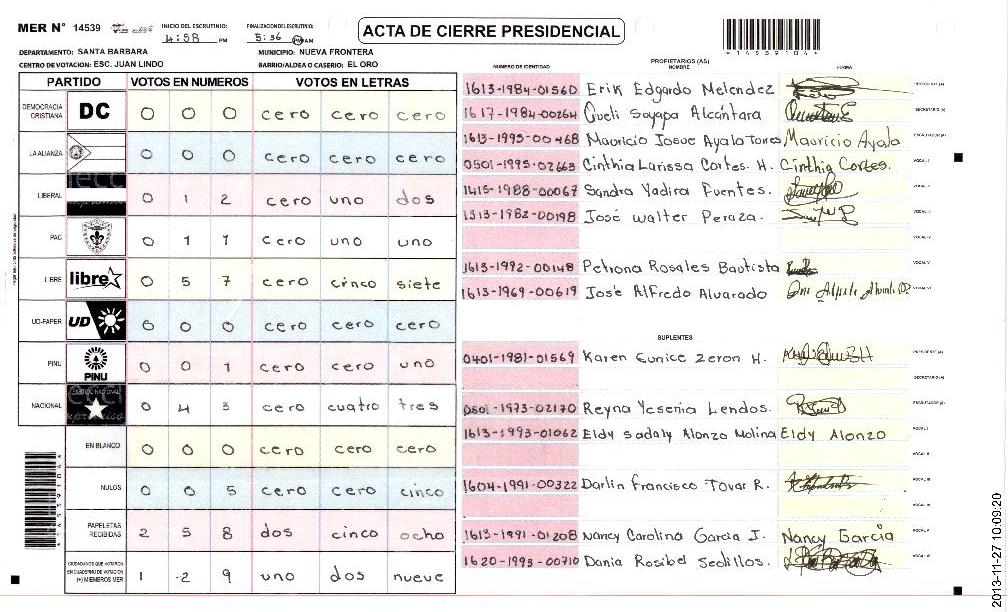 MER Nº 14539 INICIO DEL ESCRUTINIO: 4:58 PM FINALIZACION DEL ESCRUTINIO: 5:36 PM AM
ACTA DE CIERRE PRESIDENCIAL
*14539104*
DEPARTAMENTO: SANTA BARBARA MUNICIPIO: NUEVA FRONTERA
CENTRO DE VOTACION: ESC. JUAN LINDO BARRIO/ALDEA O CASERIO: EL ORO
PARTIDO VOTOS EN NUMEROS VOTOS EN LETRAS
DEMOCRACIA CRISTIANA DC 0 0 0 cero cero cero
LA ALIANZA 0 0 0 cero cero cero
LIBERAL 0 1 2 cero uno dos
PAC 0 1 1 cero uno uno
LIBRE libre 0 5 7 cero cinco siete
UD-FAPER UD 0 0 0 cero cero cero
PINU PINU 0 0 1 cero cero uno
NACIONAL 0 4 3 cero cuatro tres
EN BLANCO 0 0 0 cero cero cero
NULOS 0 0 5 cero cero cinco
PAPELETAS RECIBIDAS 2 5 8 dos cinco ocho
CIUDADANOS QUE VOTARON EN CUADERNO DE VOTACION (+) MIEMBROS MER 1 2 9 uno dos nueve
NUMERO DE IDENTIDAD PROPIETARIOS (AS) NOMBRE FIRMA
1613-1984-01560 Erik Edgardo Melendez PRESIDENTE (A)
1617-1984-00264 Queli Sayapa Alcántara SECRETARIO (A)
1613-1995-00468 Mauricio Josue Ayala Torres Mauricio Ayala ESCRUTADOR (A)
0501-1995-02663 Cinthia Larissa Cortes. H. Cinthia Cortes. VOCAL I
1415-1988-00067 Sandra Yadira Fuentes. VOCAL II
1313-1982-00198 José Walter Peraza. VOCAL III
VOCAL IV
1613-1992-00148 Petrona Rosales Bautista VOCAL V
1613-1969-00619 José Alfredo Alvarado VOCAL VI
SUPLENTES
0401-1981-01569 Karen Eunice Zeron H. PRESIDENTE (A)
SECRETARIO (A)
0501-1973-02170 Reyna Yesenia Lendos. ESCRUTADOR (A)
1613-1993-01062 Eldy Sadaly Alonzo Molina Eldy Alonzo VOCAL I
VOCAL II
1604-1991-00322 Darlin Francisco Tovar R. VOCAL III
VOCAL IV
1613-1991-01208 Nancy Carolina Garcia J. Nancy Garcia VOCAL V
1620-1993-00710 Dania Rosibel Sedillos. VOCAL VI
2013-11-27 10:09:20